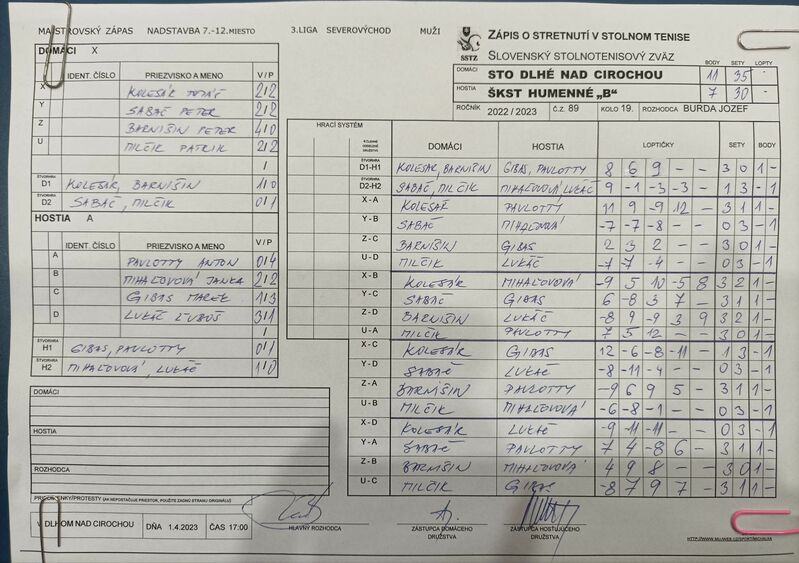 MAJSTROVSKÝ ZÁPAS NADSTAVBA 7.-12.MIESTO 3.LIGA SEVEROVÝCHOD MUŽI
ZÁPIS O STRETNUTÍ V STOLNOM TENISE
SSTZ SLOVENSKÝ STOLNOTENISOVÝ ZVÄZ
BODY SETY LOPTY
DOMÁCI STO DLHÉ NAD CIROCHOU 11 35 -
HOSTIA ŠKST HUMENNÉ „B" 7 30 -
ROČNÍK 2022 / 2023 č.z. 89 KOLO 19. ROZHODCA BURDA JOZEF
DOMÁCI X
IDENT. ČÍSLO PRIEZVISKO A MENO V/P
X KOLESÁR 2/2
Y SABAČ PETER 2/2
Z BARNIŠIN PETER 4/0
U MILČIK PATRIK 2/2
/
ŠTVORHRA D1 KOLESÁR, BARNIŠIN 1/0
D2 SABAČ, MILČIK 0/1
HOSTIA A
IDENT. ČÍSLO PRIEZVISKO A MENO V/P
A PAVLOTTY ANTON 0/4
B MIHAĽOVOVÁ JANKA 2/2
C GIBAS MAREK 1/3
D LUKÁČ ĽUBOŠ 3/1
/
ŠTVORHRA H1 GIBAS, PAVLOTTY 0/1
H2 MIHAĽOVOVÁ, LUKÁČ 1/0
DOMÁCI
HOSTIA
ROZHODCA
PRIPOMIENKY/PROTESTY (AK NEPOSTAČUJE PRIESTOR, POUŽITE ZADNÚ STRANU ORIGINÁLU)
V DLHOM NAD CIROCHOU DŇA 1.4.2023 ČAS 17:00
HRACÍ SYSTÉM
DOMÁCI HOSTIA LOPTIČKY SETY BODY
ŠTVORHRA D1-H1 KOLESÁR, BARNIŠIN GIBAS, PAVLOTTY 8 6 9 - - 3 0 1 -
ŠTVORHRA D2-H2 SABAČ, MILČIK MIHAĽOVOVÁ, LUKÁČ 9 -1 -3 -3 - 1 3 - 1
X - A KOLESÁR PAVLOTTY 11 9 -9 12 - 3 1 1 -
Y - B SABAČ MIHAĽOVOVÁ -7 -7 -8 - - 0 3 - 1
Z - C BARNIŠIN GIBAS 2 3 2 - - 3 0 1 -
U - D MILČIK LUKÁČ -7 -7 -4 - - 0 3 - 1
X - B KOLESÁR MIHAĽOVOVÁ -9 5 10 -5 8 3 2 1 -
Y - C SABAČ GIBAS 6 -8 3 7 - 3 1 1 -
Z - D BARNIŠIN LUKÁČ -8 9 -9 3 9 3 2 1 -
U - A MILČIK PAVLOTTY 7 5 12 - - 3 0 1 -
X - C KOLESÁR GIBAS 12 -6 -8 -11 - 1 3 - 1
Y - D SABAČ LUKÁČ -8 -11 -4 - - 0 3 - 1
Z - A BARNIŠIN PAVLOTTY -9 6 9 5 - 3 1 1 -
U - B MILČIK MIHAĽOVOVÁ -6 -8 -1 - - 0 3 - 1
X - D KOLESÁR LUKÁČ -9 -11 -11 - - 0 3 - 1
Y - A SABAČ PAVLOTTY 7 4 -8 6 - 3 1 1 -
Z - B BARNIŠIN MIHAĽOVOVÁ 4 9 8 - - 3 0 1 -
U - C MILČIK GIBAS -8 7 9 7 - 3 1 1 -
HLAVNÝ ROZHODCA
ZÁSTUPCA DOMÁCEHO DRUŽSTVA
ZÁSTUPCA HOSŤUJÚCEHO DRUŽSTVA